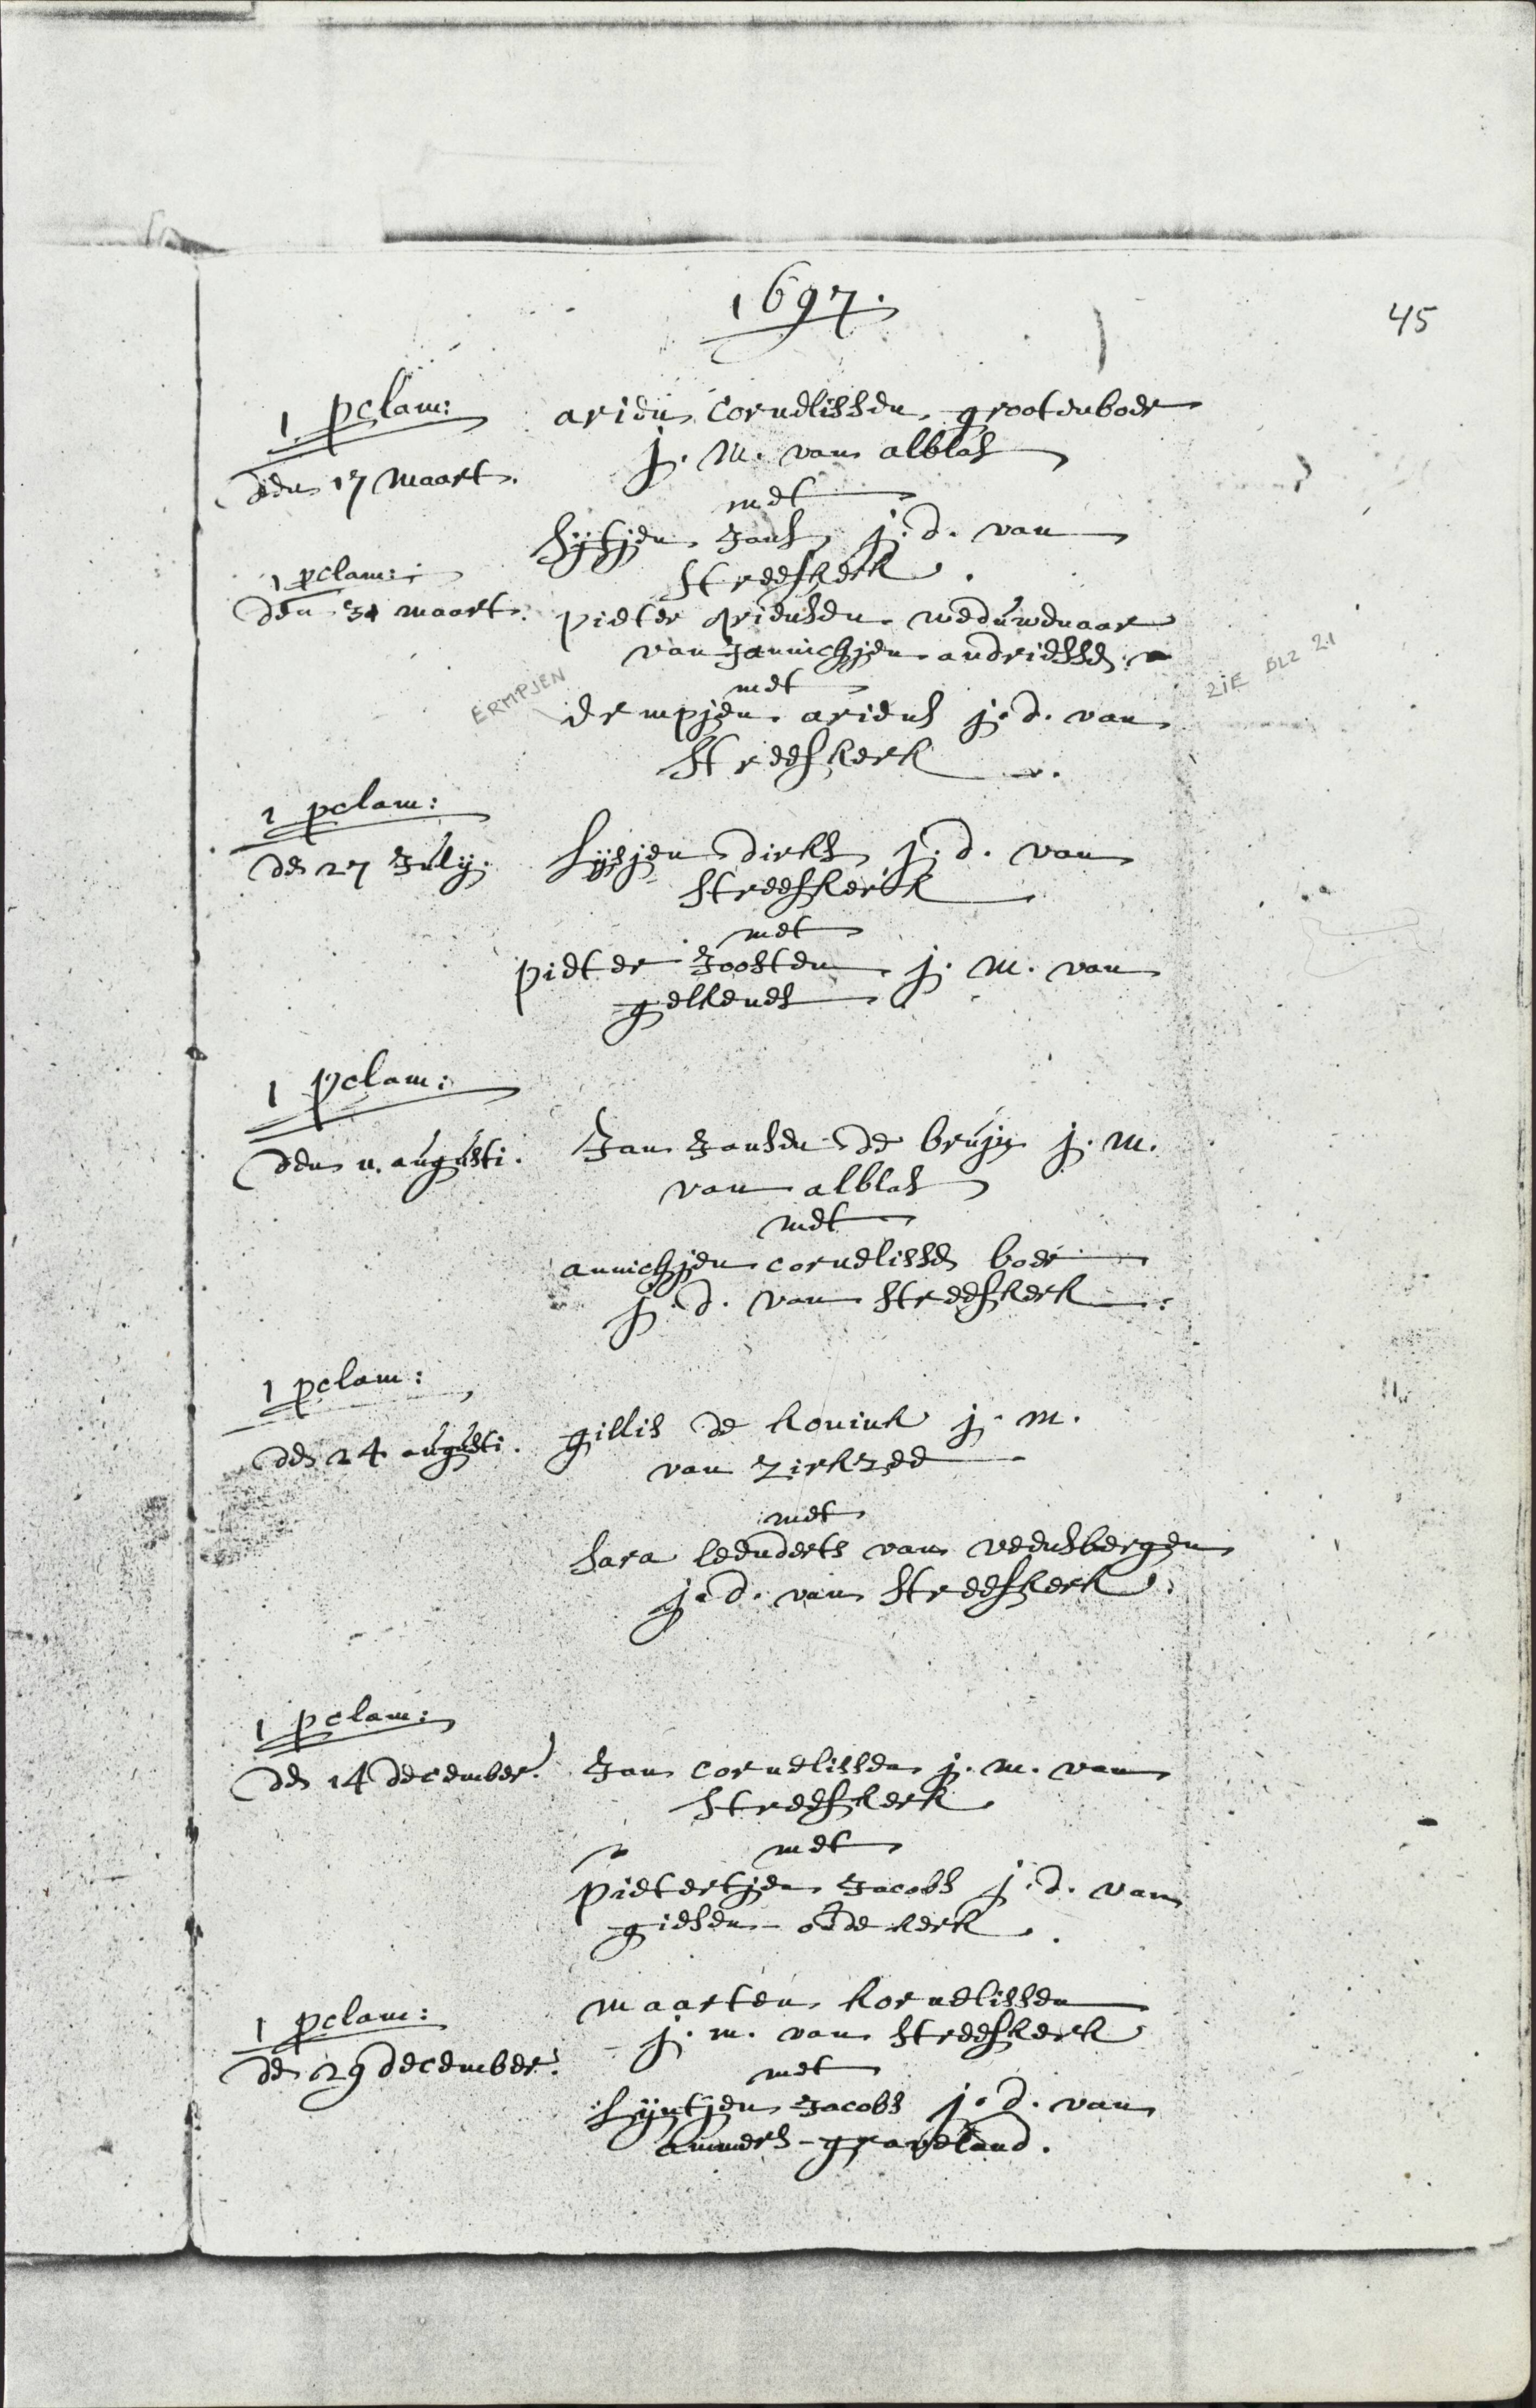 1697.
45
1 pclam:
den 17 Maart.
arien Cornelissen grootenboer
j. M. van alblas
met
Sijtjen Jans j. d. van
Streefkerk.
1 pclam:
den 31 maart.
pieter ariensen weduwenaar
van Jannichjen andriessen
met
ERMPJEN
ermpjen ariens j. d. van
Streefkerk
ZIE BLZ 21
1 pclam:
den 27 July.
Lijsjen dirks j. d. van
Streefkerk
met
pieter Joosten j. M. van
gelkenes
1 pclam:
den 11 augusti.
Jan Jansen de bruyn j. M.
van alblas
met
annichjen cornelissen boer
j. d. van Streefkerk.
1 pclam:
den 24 augusti.
gillis de konink j. M.
van zirkzee
met
Sara leenderts van veensbergen
j. d. van Streefkerk.
1 pclam:
den 14 december.
Jan cornelissen j. m. van
Streefkerk
met
pietertjen Jacobs j. d. van
giesen-oudekerk.
1 pclam:
den 29 december.
maarten kornelissen
j. m. van Streefkerk
met
Lijntjen Jacobs j. d. van
ammers-graveland.